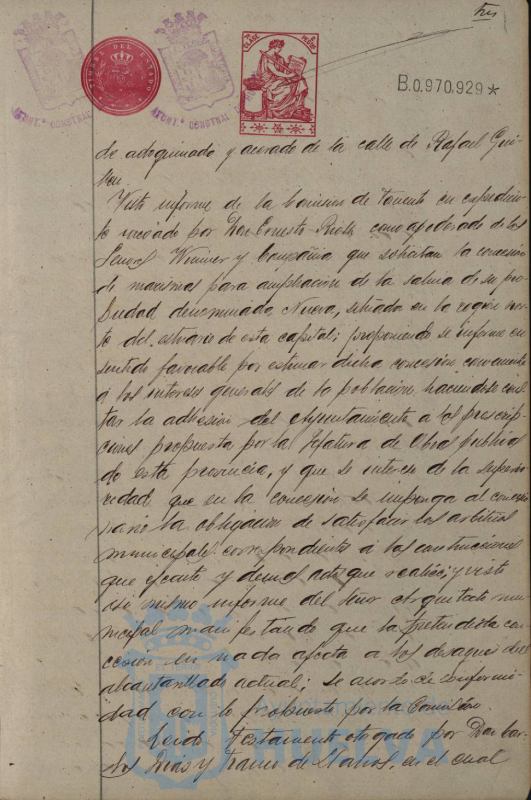 tres
TIMBRE DEL ESTADO
AYUNT.º CONSTNAL
AYUNT.º CONSTNAL
B.0.970.929*
de adoquinado y acerado de la calle de Rafael Gui-
llen.
Visto informe de la Comision de Fomento en expedien-
te incoado por Don Ernesto como apoderado de los
Señores y Compañia que solicitan la concesion
de marismas para ampliacion de la salina de su pro-
piedad denominada Nueva, situada en la region nor-
te del estuario de esta capital; proponiendo se informe en
sentido favorable por estimar dicha concesion conveniente
á los intereses generales de la poblacion, haciendose cons-
tar la adhesion del Ayuntamiento á las prescrip-
ciones propuesta por la Jefatura de Obras publicas
de esta provincia, y que se interese de la superio-
ridad que en la concesion se imponga al concesio-
nario la obligacion de satisfacer los arbitrios
municipales correspondientes á las construcciones
que ejecute y demas actos que realice; y visto
asi mismo informe del señor Arquitecto mu-
nicipal manifestando que la pretendida con-
cesion en nada afecta á los desagües del
alcantarillado actual; se acordó de conformi-
dad con lo propuesto por la Comision.
Leido testamento otorgado por Don Car-
los Dias y Franco de Llanos, en el cual
HUELVA